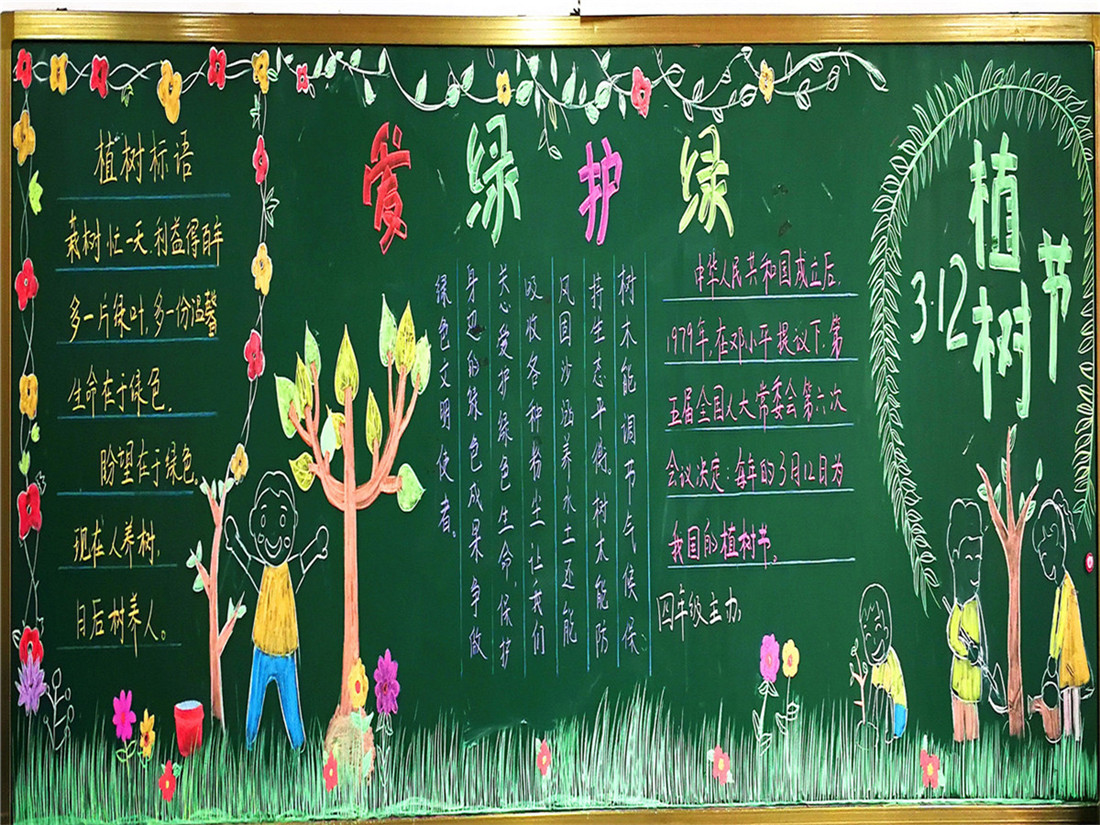 爱绿护绿
植树标语
栽树忙一天,利益得百年
多一片绿叶,多一份温馨
生命在于绿色,
盼望在于绿色,
现在人养树,
日后树养人。
树木能调节气候保、
持生态平衡。树木能防
风固沙涵养水土还能
吸收各种粉尘让我们
关心爱护绿色生命,保护
身边的绿色成果争做
绿色文明使者。
中华人民共和国成立后,
1979年,在邓小平提议下,第
五届全国人大常委会第六次
会议决定:每年的3月12日为
我国的植树节。
四年级主办
3·12
植树节